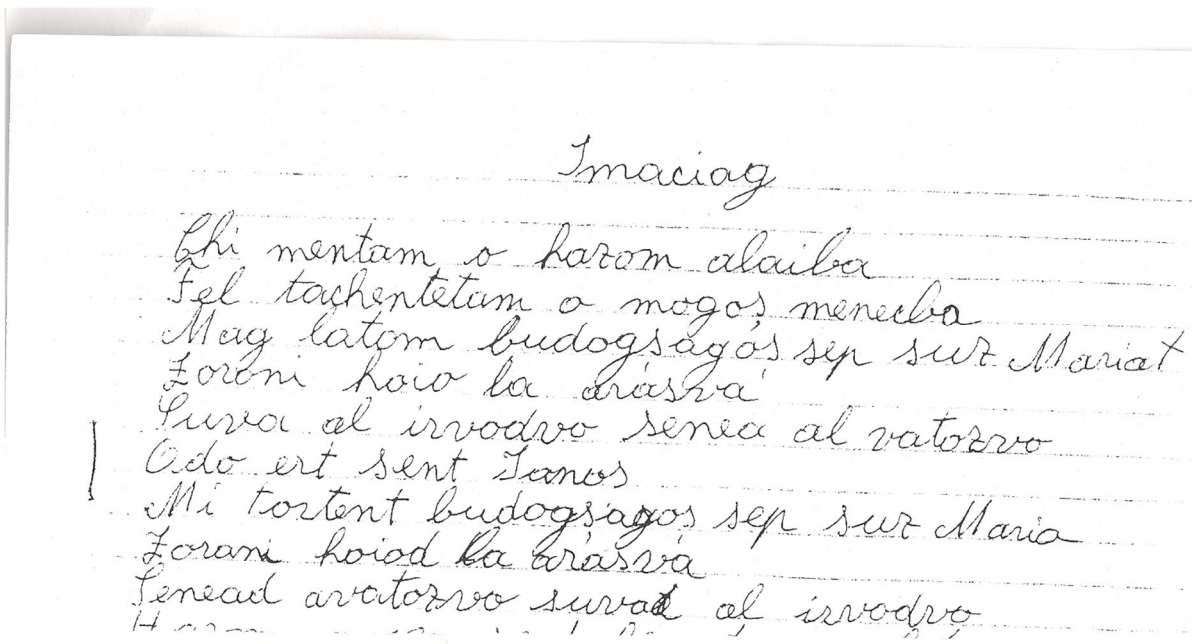 Imaciag
Chi mentam o hazom alaiba
Fel tachentetam o mogos menecba
Mag latom budogsagós sep suz Mariat
Zorani hoio la arásvá
Suva al izvodvo senea al vatozvo
Odo ert sent Ianos
Mi toztent budogsagos sep suz Maria
Zorani hoiod la arásvá
Senead avatozvo suvad al izvodvo